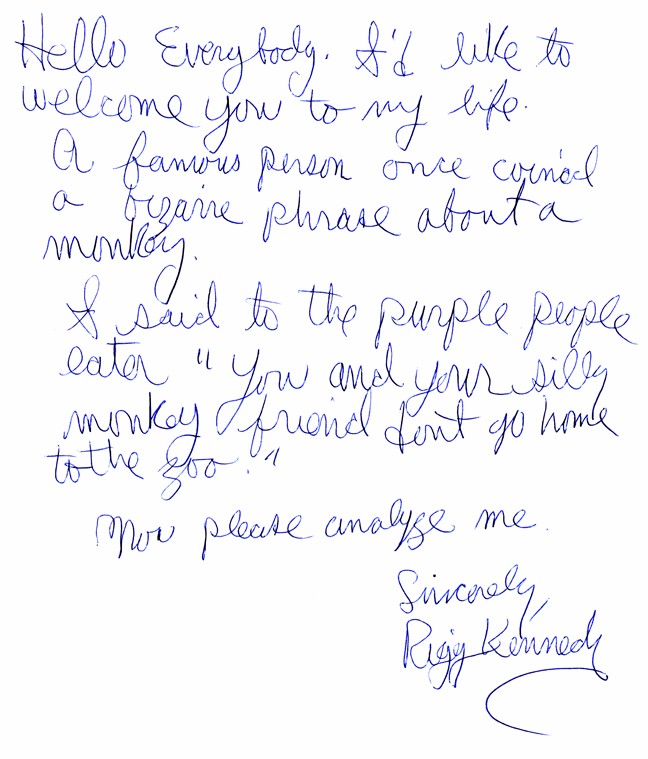 Hello Everybody. I'd like to
welcome you to my life.
A famous person once coined
a bizarre phrase about a
monkey.
I said to the purple people
eater "You and your silly
monkey friend don't go home
to the zoo."
Now please analyze me.
Sincerely,
Rigg Kennedy